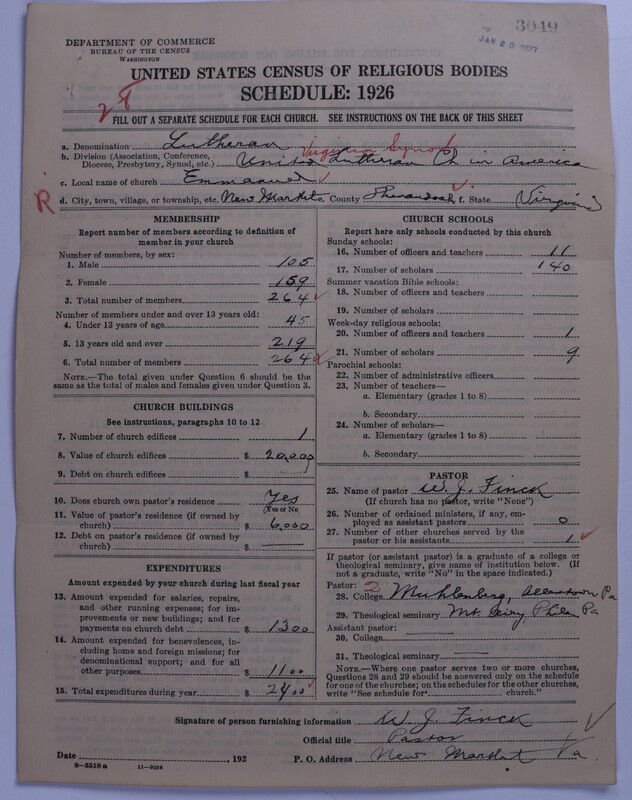 3049
JAN 20 1927
DEPARTMENT OF COMMERCE
BUREAU OF THE CENSUS
WASHINGTON
UNITED STATES CENSUS OF RELIGIOUS BODIES
SCHEDULE: 1926
FILL OUT A SEPARATE SCHEDULE FOR EACH CHURCH. SEE INSTRUCTIONS ON THE BACK OF THIS SHEET
a. Denomination Lutheran Virginia Synod
b. Division (Association, Conference, Diocese, Presbytery, Synod, etc.) United Lutheran Ch in America
c. Local name of church Emmanuel
R d. City, town, village, or township, etc. New Market e. County Shenandoah f. State Virginia
MEMBERSHIP
Report number of members according to definition of
member in your church
Number of members, by sex:
1. Male 105
2. Female 159
3. Total number of members 264
Number of members under and over 13 years old:
4. Under 13 years of age 45
5. 13 years old and over 219
6. Total number of members 264
NOTE.—The total given under Question 6 should be the
same as the total of males and females given under Question 3.
CHURCH BUILDINGS
See instructions, paragraphs 10 to 12
7. Number of church edifices 1
8. Value of church edifices $ 20,000
9. Debt on church edifices $
10. Does church own pastor's residence Yes
(Yes or No)
11. Value of pastor's residence (if owned by
church) $ 6,000
12. Debt on pastor's residence (if owned by
church) $
EXPENDITURES
Amount expended by your church during last fiscal year
13. Amount expended for salaries, repairs,
and other running expenses; for im-
provements or new buildings; and for
payments on church debt $ 1300
14. Amount expended for benevolences, in-
cluding home and foreign missions; for
denominational support; and for all
other purposes $ 1100
15. Total expenditures during year $ 2400
CHURCH SCHOOLS
Report here only schools conducted by this church
Sunday schools:
16. Number of officers and teachers 11
17. Number of scholars 140
Summer vacation Bible schools:
18. Number of officers and teachers
19. Number of scholars
Week-day religious schools:
20. Number of officers and teachers 1
21. Number of scholars 9
Parochial schools:
22. Number of administrative officers
23. Number of teachers—
a. Elementary (grades 1 to 8)
b. Secondary
24. Number of scholars—
a. Elementary (grades 1 to 8)
b. Secondary
PASTOR
25. Name of pastor W. J. Finck
(If church has no pastor, write "None")
26. Number of ordained ministers, if any, em-
ployed as assistant pastors 0
27. Number of other churches served by the
pastor or his assistants 1
If pastor (or assistant pastor) is a graduate of a college or
theological seminary, give name of institution below. (If
not a graduate, write "No" in the space indicated.)
Pastor: 2
28. College Muhlenberg, Allentown Pa
29. Theological seminary Mt. Airy Phila Pa
Assistant pastor:
30. College
31. Theological seminary
NOTE.—Where one pastor serves two or more churches,
Questions 28 and 29 should be answered only on the schedule
for one of the churches; on the schedules for the other churches,
write "See schedule for church."
Signature of person furnishing information W. J. Finck
Official title Pastor
Date , 192 P. O. Address New Market Va.
8—5518 a 11—9054